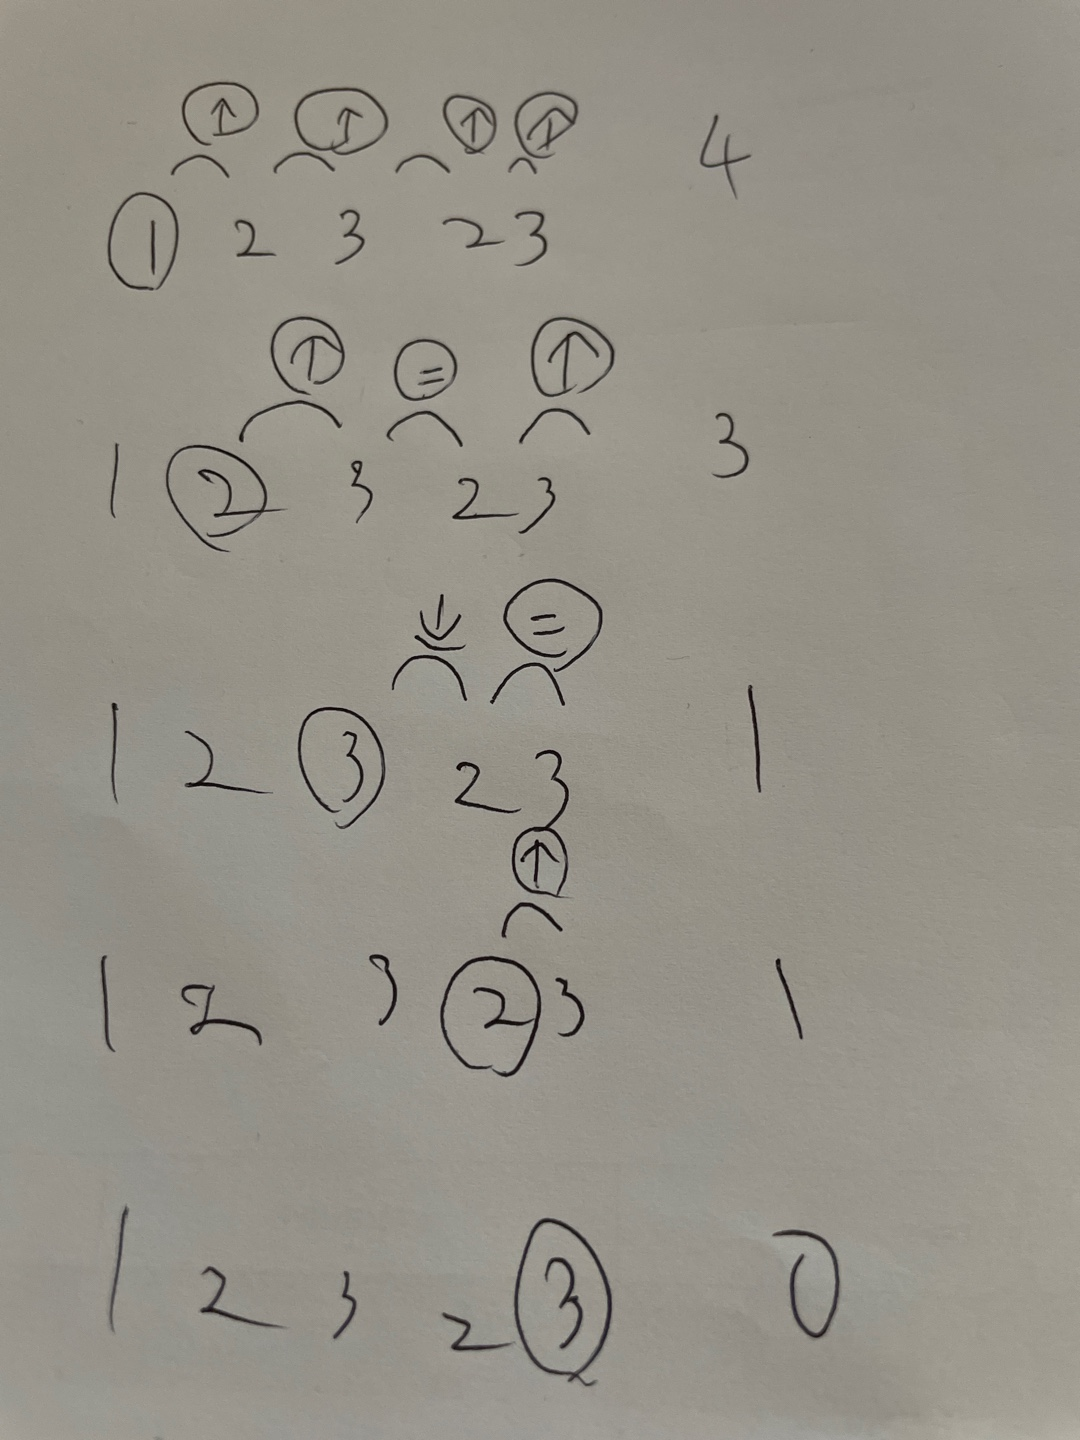 ↑ ↑ ↑ ↑
1 2 3 2 3 4
↑ = ↑
1 2 3 2 3 3
↓ =
1 2 3 2 3 1
↑
1 2 3 2 3 1
1 2 3 2 3 0